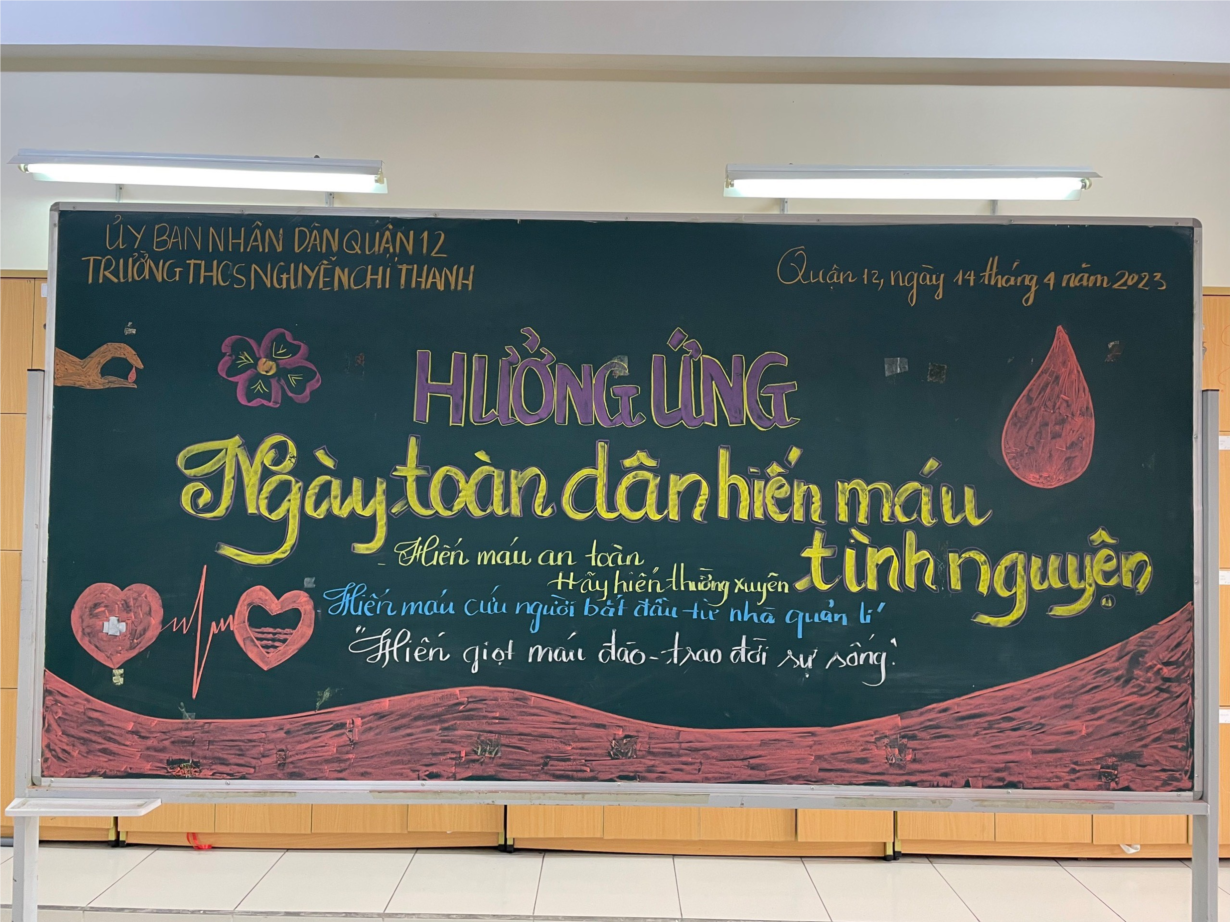 ỦY BAN NHÂN DÂN QUẬN 12
TRƯỜNG THCS NGUYỄN CHÍ THANH
Quận 12, ngày 14 tháng 4 năm 2023
HƯỞNG ỨNG
Ngày toàn dân hiến máu
tình nguyện
- Hiến máu an toàn
Hãy hiến thường xuyên
Hiến máu cứu người bắt đầu từ nhà quản lí
"Hiến giọt máu đào - trao đời sự sống".